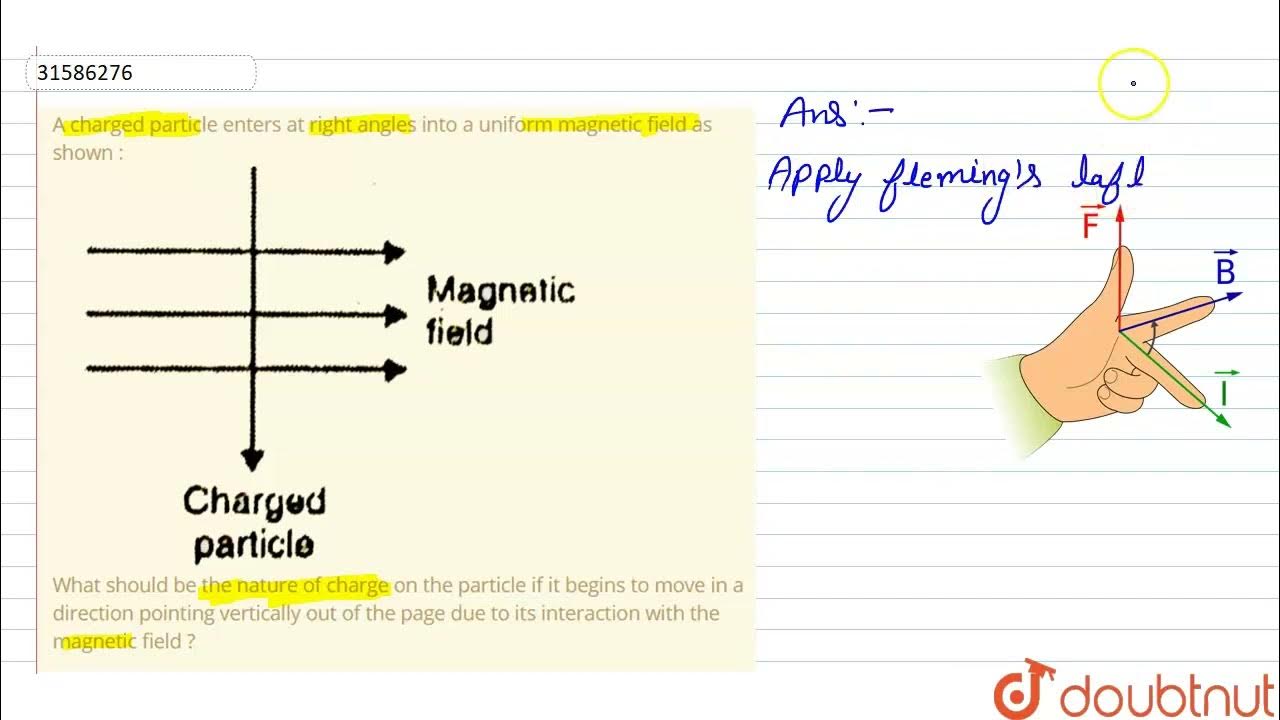 31586276
A charged particle enters at right angles into a uniform magnetic field as
shown :
Magnetic
field
Charged
particle
What should be the nature of charge on the particle if it begins to move in a
direction pointing vertically out of the page due to its interaction with the
magnetic field ?
Ans:-
Apply fleming's lafl
F
B
I
doubtnut